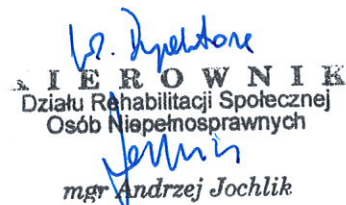 KIEROWNIK
Działu Rehabilitacji Społecznej
Osób Niepełnosprawnych
mgr Andrzej Jochlik